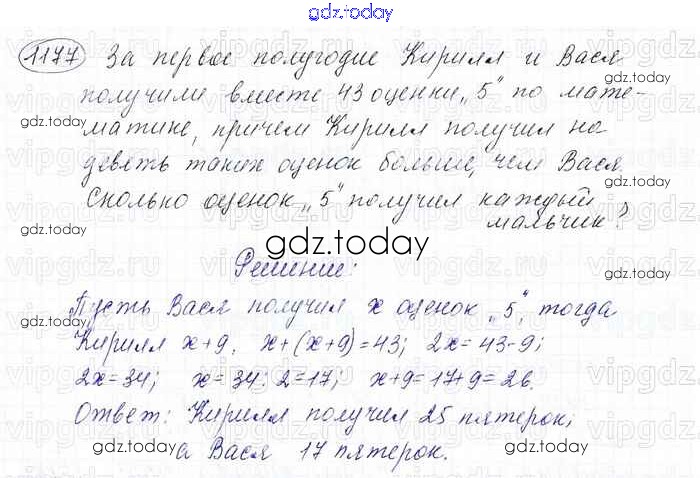 gdz.today
1177 За первое полугодие Кирилл и Вася
получили вместе 43 оценки „5" по мате-
gdz.today
матике, причем Кирилл получил на
девять таких оценок больше, чем Вася.
gdz.today
Сколько оценок „5" получил каждый
мальчик?
gdz.today
Решение:
Пусть Вася получил x оценок „5", тогда
gdz.today
Кирилл x+9. x+(x+9)=43; 2x=43-9;
2x=34; x=34:2=17; x+9=17+9=26.
gdz.today
Ответ: Кирилл получил 25 пятерок,
а Вася 17 пятерок.
gdz.today